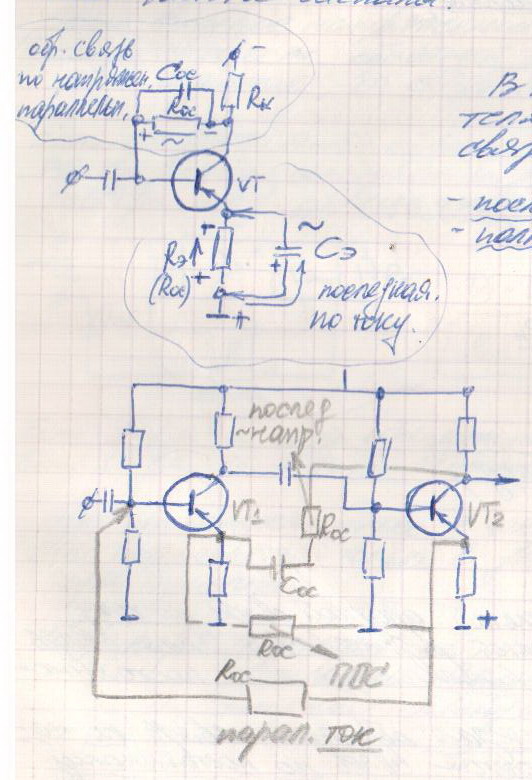 обр. связь
по напряжен.
параллельн.
Cос
Rос
Rк
+ ~ -
VT
Rэ
(Rос)
Cэ
последная.
по току.
В
тел
связ
- посл
- пал
послед
~напр.
VT1
Rос
VT2
Cос
Rос
ПОС
Rос
парал. ток